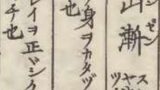 山漸
ゼン
身ヲカタヅ
也
レイヲ正シク
チ也